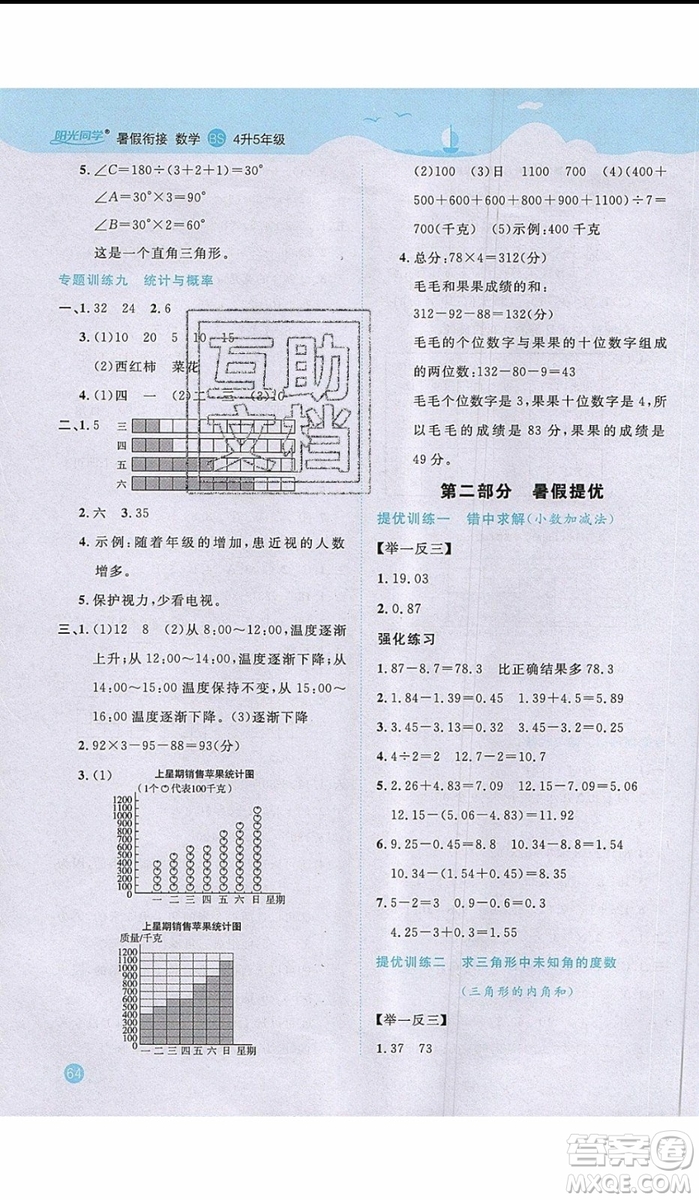 阳光同学® 暑假衔接 数学 BS 4升5年级
5.∠C=180÷(3+2+1)=30°
∠A=30°×3=90°
∠B=30°×2=60°
这是一个直角三角形。
专题训练九 统计与概率
一、1.32 24 2.6
3.(1)10 20 5 10 15
(2)西红柿 菜花
4.(1)四 一 (2)二 三 (3)10
二、1.5
三
四
五
六
2.六 3.35
4.示例:随着年级的增加,患近视的人数
增多。
5.保护视力,少看电视。
三、1.(1)12 8 (2)从 8:00~12:00 温度逐渐
上升;从 12:00~14:00 温度逐渐下降;从
14:00~16:00 温度保持不变,从 16:00~
18:00 温度逐渐下降。(3)逐渐下降
2.92×3-95-88=93(分)
3.(1)
上星期销售苹果统计图
(1个 代表100千克)
1200
1100
1000
900
800
700
600
500
400
300
200
100
0
一 二 三 四 五 六 日 星期
上星期销售苹果统计图
质量/千克
1200
1100
1000
900
800
700
600
500
400
300
200
100
0
一 二 三 四 五 六 日 星期
64
(2)100 (3)日 1100 700 (4)(400
+500+600+600+800+900+1100)÷7=
700(千克) (5)示例:400千克
4.总分:78×4=312(分)
毛毛和果果成绩的和:
312-92-88=132(分)
毛毛的个位数字与果果的十位数字组成
的两位数:132-83-9=40
毛毛的个位数字是 3,果果的十位数字是 4,
所以毛毛的成绩是 83 分,果果的成绩是
49 分。
第二部分 暑假提优
提优训练一 错中求解(小数加减法)
【举一反三】
1.19.03
2.0.87
强化练习
1.87-8.7=78.3 比正确结果多 78.3
2.1.84-1.39=0.45 1.39+4.5=5.89
3.3.45-3.12=0.33 3.45-0.33=3.12
4.4÷2=2 12.7-2=10.7
5.2.46+4.63=7.09 12.15-7.09=5.06
12.15-(4.63+2.46)=5.06
6.9.25-0.45=8.8 10.34-8.8=1.54
10.34-(9.25-0.45)=1.54
7.5-2=3 4.25-3=1.25
4.25-(5-2)=1.25
提优训练二 求三角形中未知角的度数
(三角形的内角和)
【举一反三】
1.37 73
互助
文档
答案圈
MXQE.COM